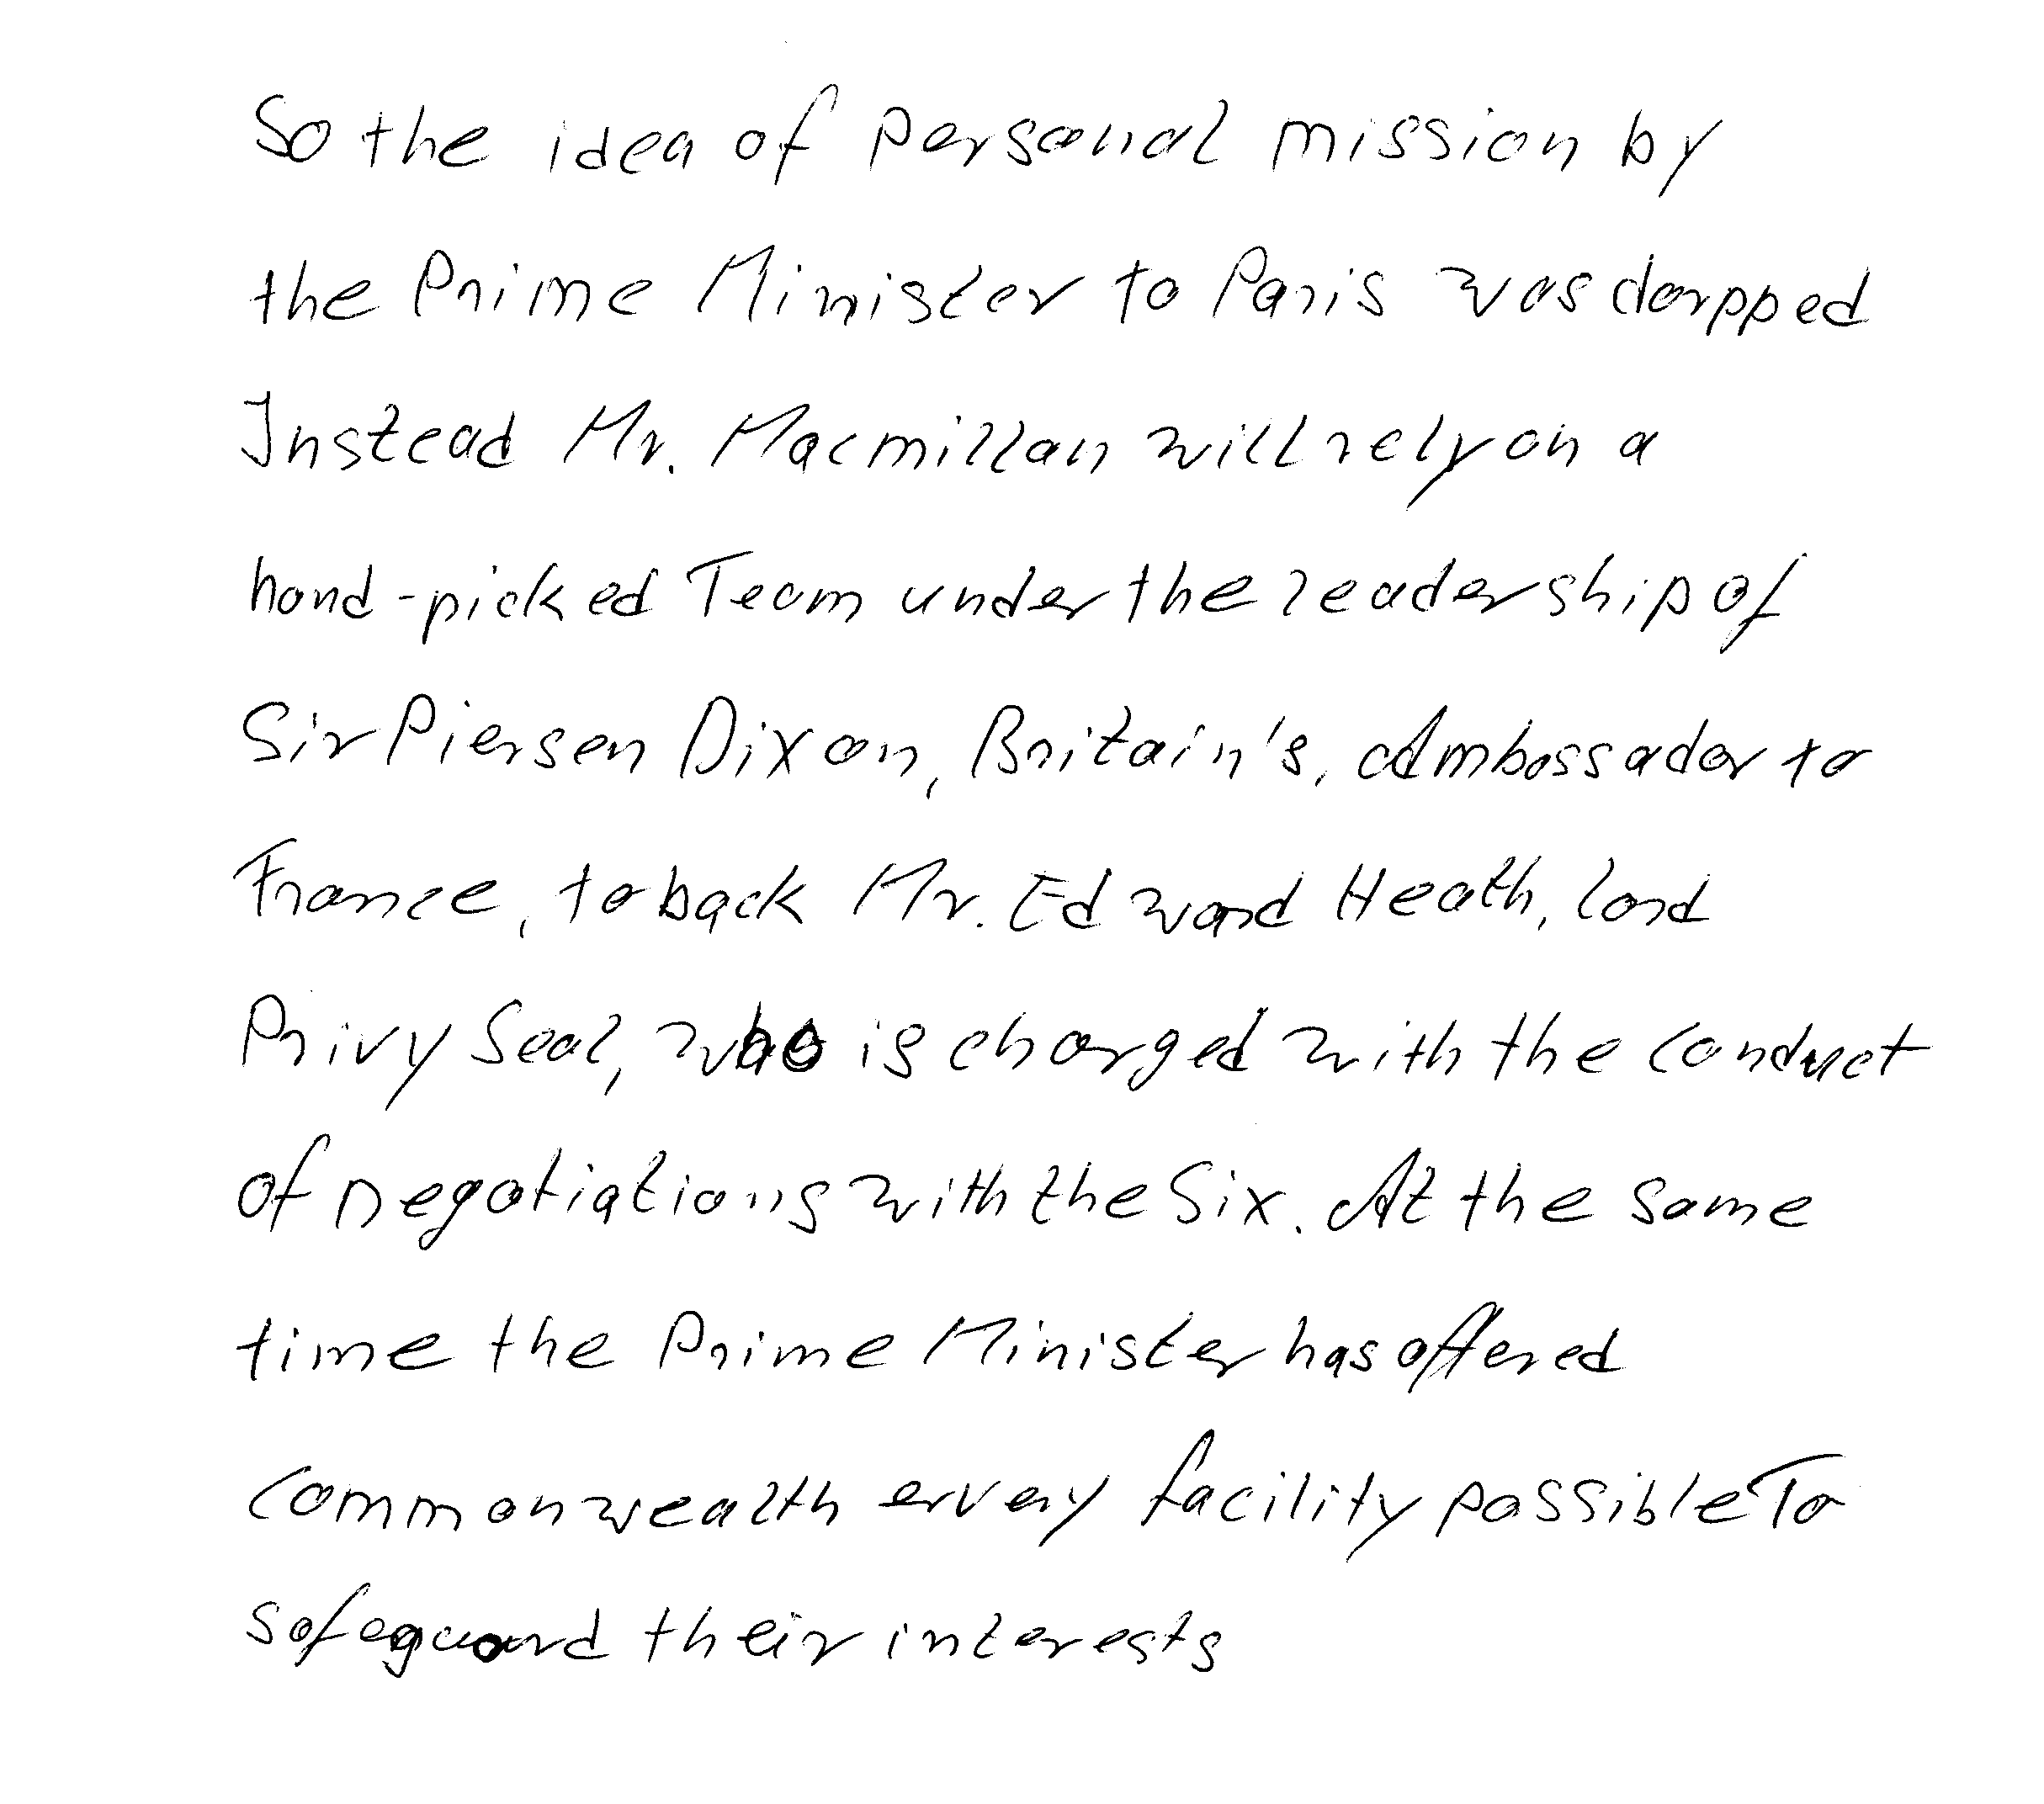 So the idea of personal mission by
the Prime Minister to Paris was dorpped
Instead Mr. Macmillan will rely on a
hand-picked Team under the leadership of
Sir Piersen Dixon, Britain's, Ambassador to
France, to back Mr. Edward Heath, Lord
Privy Seal, who is charged with the conduct
of negotiations with the Six. At the same
time the Prime Minister has offered
Commonwealth ervery facility possible To
safeguard their interests